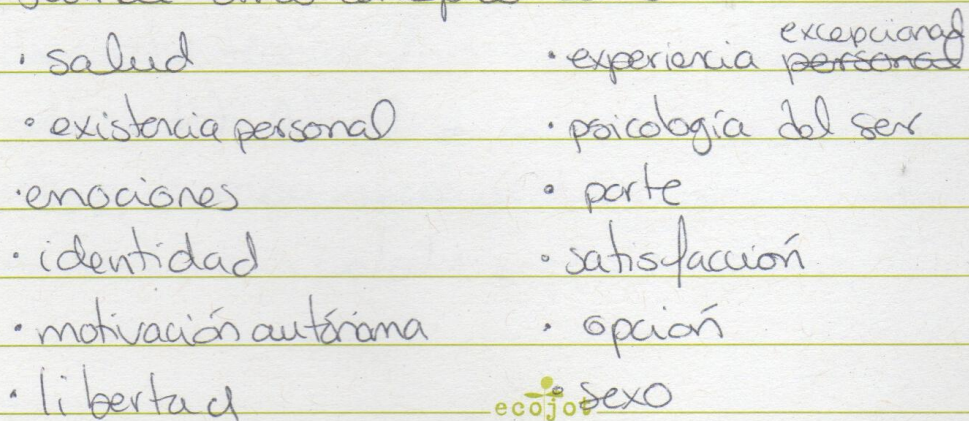 · salud
· existencia personal
· emociones
· identidad
· motivación autónoma
· libertad
· experiencia ~~personal~~ excepcional
· psicología del ser
· parte
· satisfacción
· opción
· sexo
ecojot